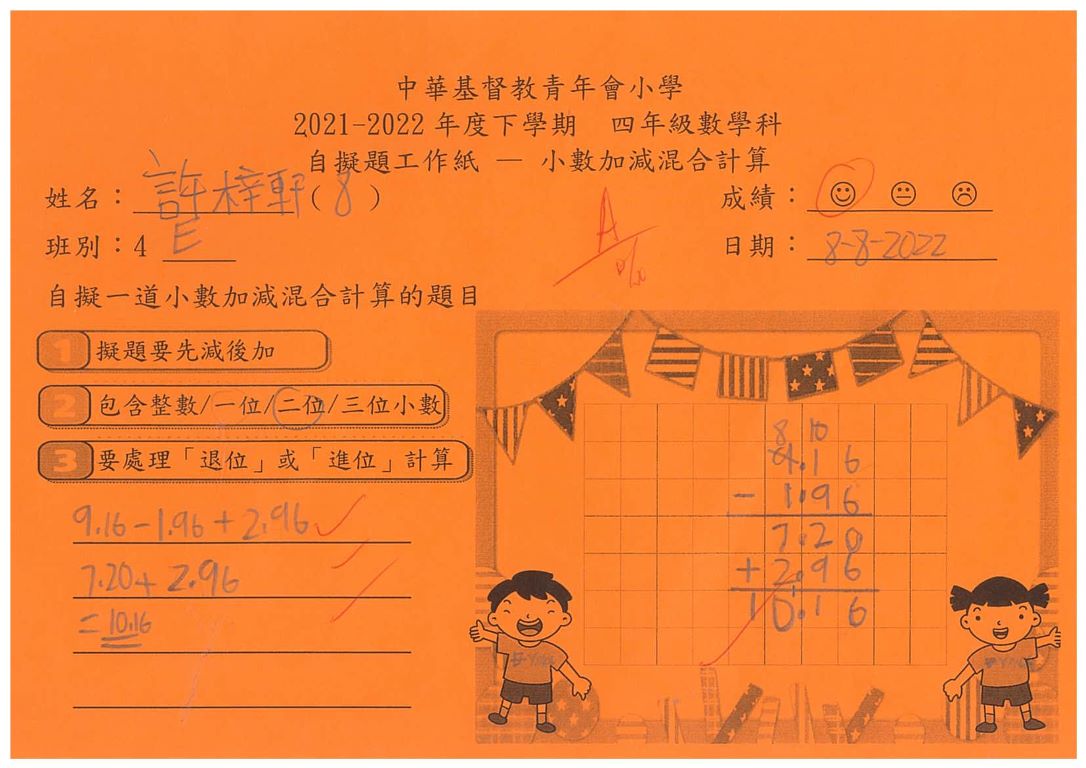 中華基督教青年會小學
2021-2022 年度下學期 四年級數學科
自擬題工作紙 — 小數加減混合計算
姓名：許梓軒(8)
成績：
班別：4 E
日期：8-8-2022
A
自擬一道小數加減混合計算的題目
1 擬題要先減後加
2 包含整數/一位/二位/三位小數
3 要處理「退位」或「進位」計算
9.16-1.96+2.96
7.20+2.96
=10.16
8 10
9.16
- 1.96
7.20
+ 2.96
10.16